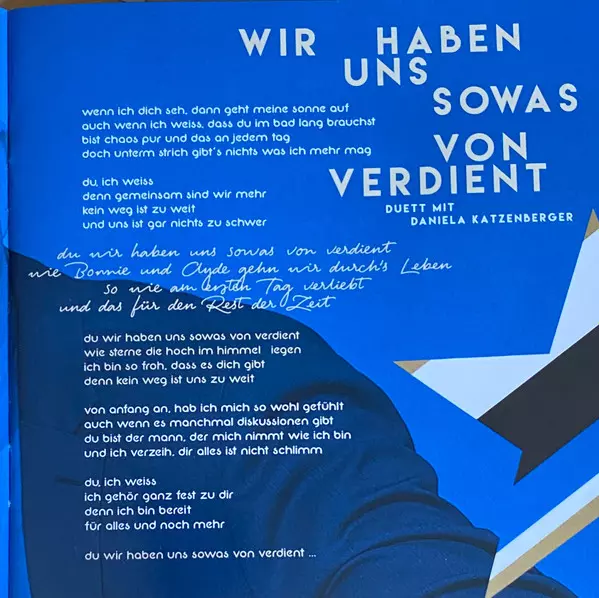 WIR HABEN
UNS
SOWAS
VON
VERDIENT
DUETT MIT
DANIELA KATZENBERGER
wenn ich dich seh, dann geht meine sonne auf
auch wenn ich weiss, dass du im bad lang brauchst
bist chaos pur und das an jedem tag
doch unterm strich gibt's nichts was ich mehr mag
du, ich weiss
denn gemeinsam sind wir mehr
kein weg ist zu weit
und uns ist gar nichts zu schwer
du wir haben uns sowas von verdient
wie Bonnie und Clyde gehn wir durch's Leben
so wie am ersten Tag verliebt
und das für den Rest der Zeit
du wir haben uns sowas von verdient
wie sterne die hoch im himmel iegen
ich bin so froh, dass es dich gibt
denn kein weg ist uns zu weit
von anfang an, hab ich mich so wohl gefühlt
auch wenn es manchmal diskussionen gibt
du bist der mann, der mich nimmt wie ich bin
und ich verzeih, dir alles ist nicht schlimm
du, ich weiss
ich gehör ganz fest zu dir
denn ich bin bereit
für alles und noch mehr
du wir haben uns sowas von verdient ...